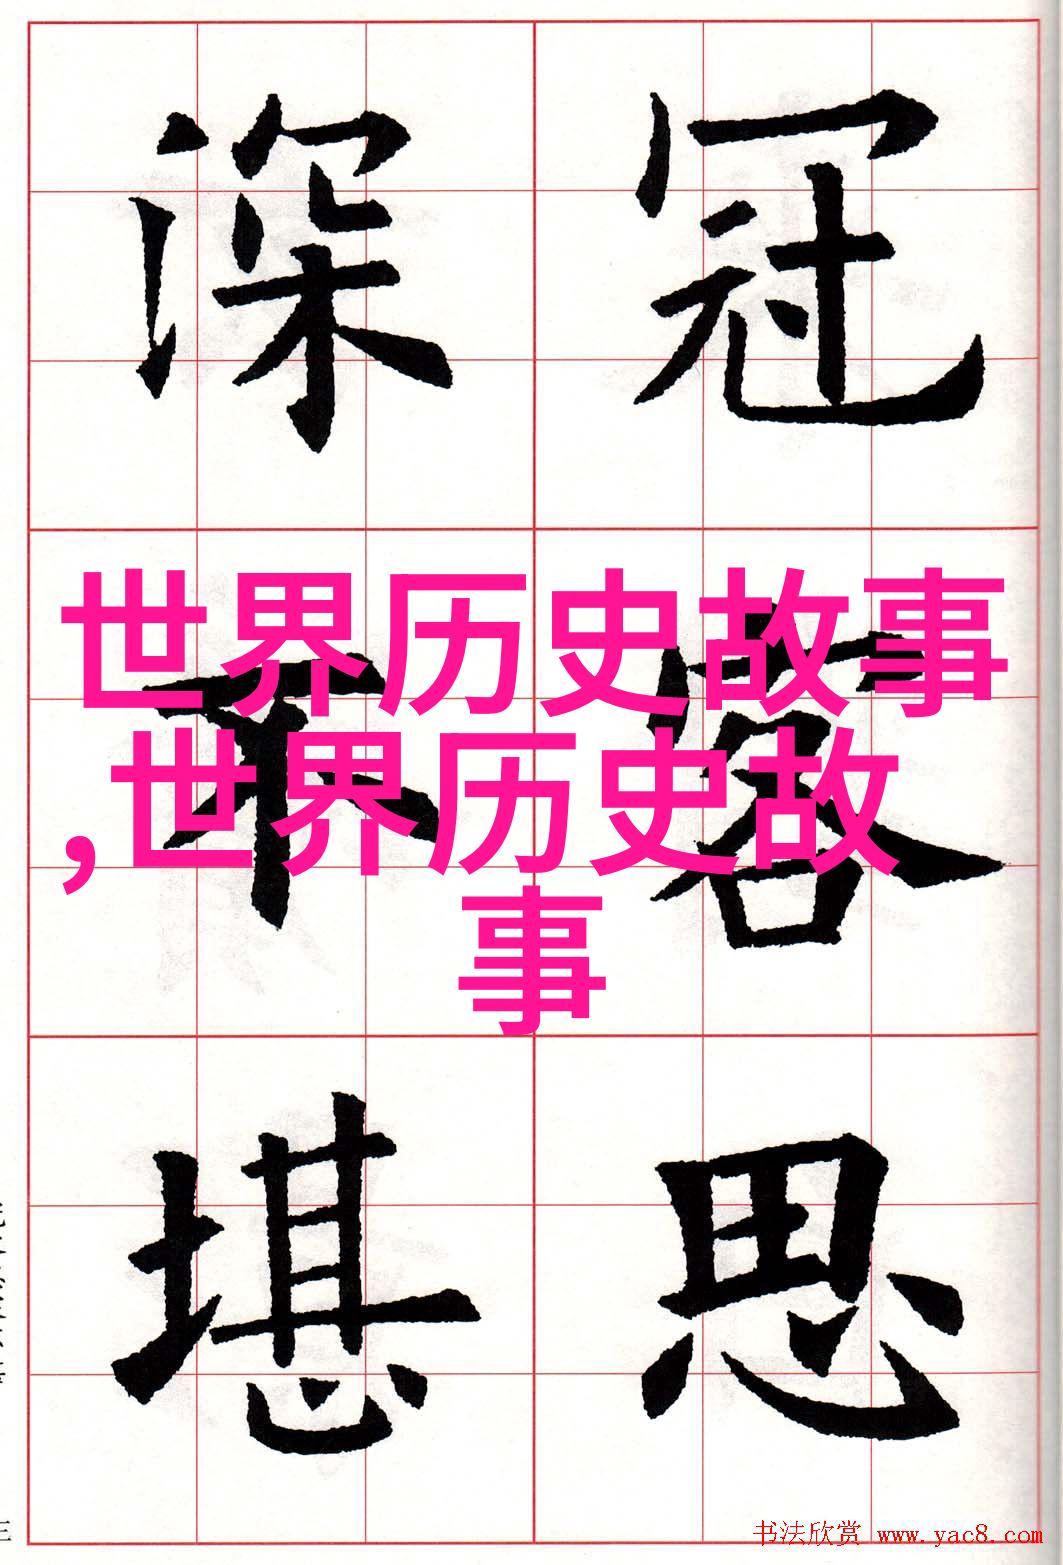 深 冠
世界历史故事
,世界历史故
事
不 容
堪 思
书法欣赏 www.yac8.com